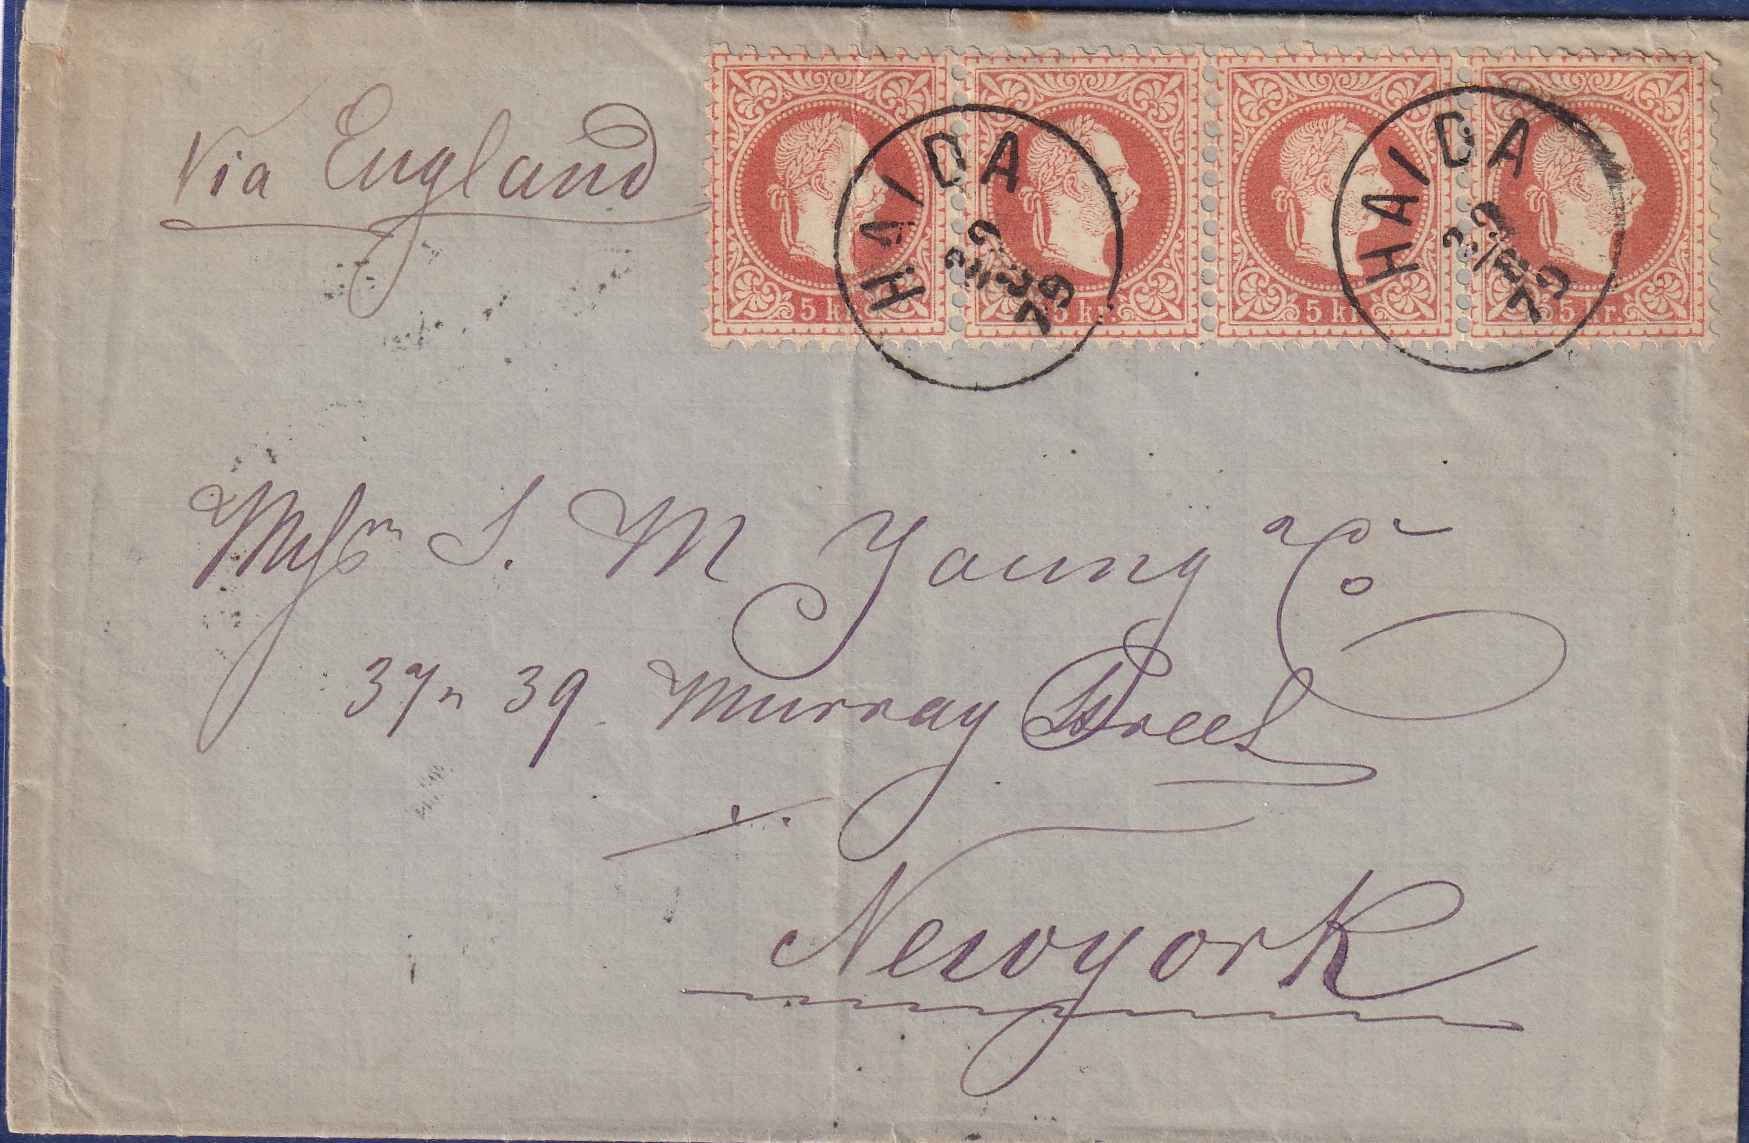 Via England
5 kr. 5 kr. 5 kr. 5 kr.
HAIDA
79
HAIDA
79
Messrs S. M Young & Co
37 n 39 Murray Street
Newyork